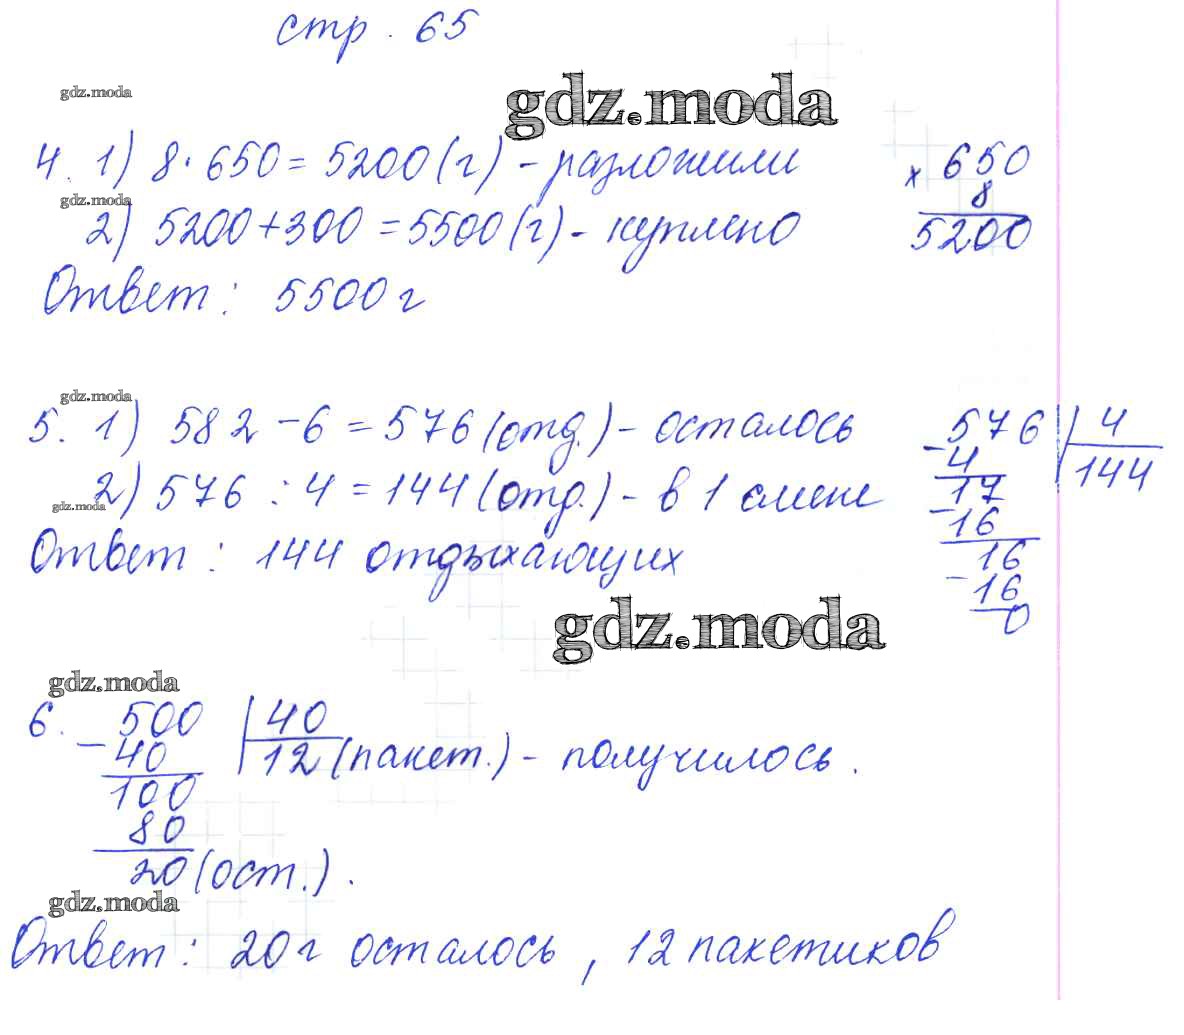 стр. 65
gdz.moda
gdz.moda
4. 1) 8·650=5200(г) - разложили
× 650
gdz.moda
8
2) 5200+300=5500(г) - куплено
5200
Ответ: 5500 г
gdz.moda
5. 1) 582-6=576(отд.) - осталось
576 | 4
- 4
144
2) 576:4=144(отд.) - в 1 смене
17
gdz.moda
- 16
Ответ: 144 отдыхающих
16
- 16
0
gdz.moda
gdz.moda
6. 500 | 40
- 40
12 (пакет.) - получилось.
100
80
20 (ост.).
gdz.moda
Ответ: 20 г осталось, 12 пакетиков